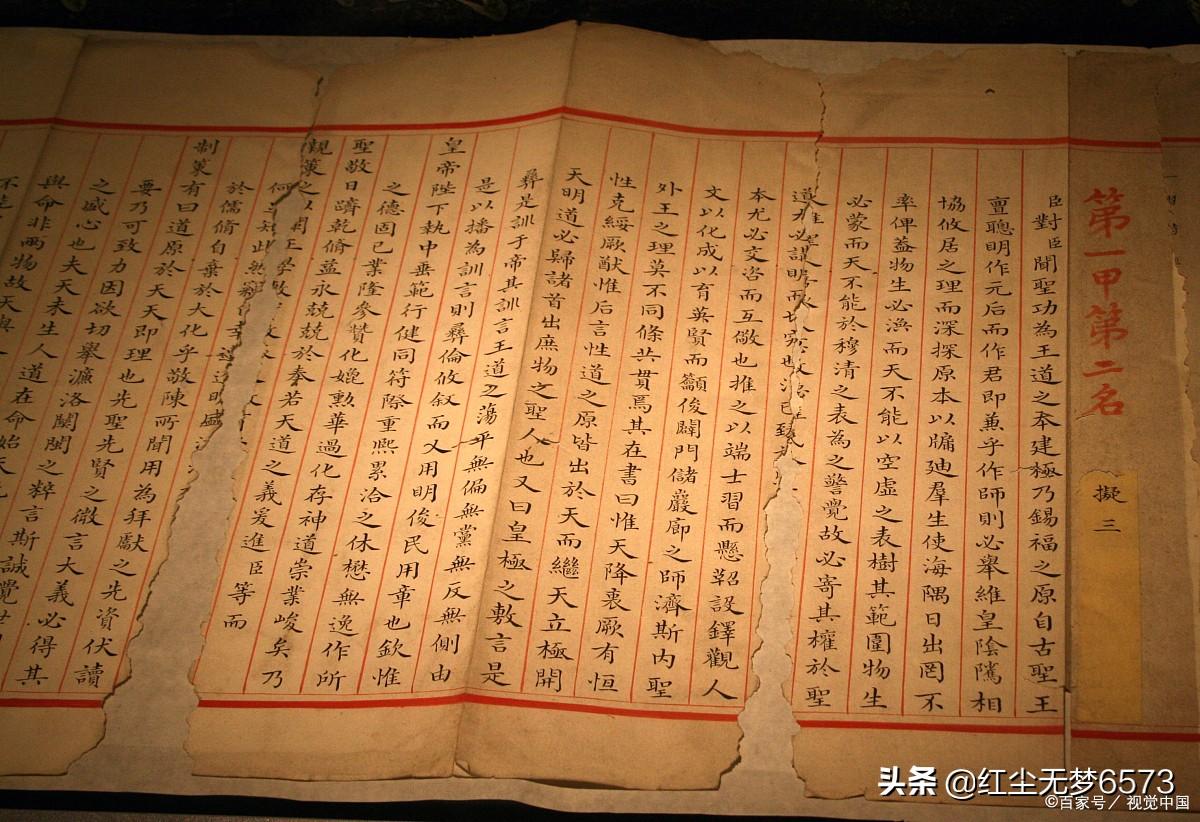 第一甲第二名
擬三
臣對臣聞聖功為王道之本建極乃錫福之原自古聖王
亶聰明作元后而作君即兼乎作師則必舉維皇陰隲相
協攸居之理而深探原本以牖迪羣生使海隅日出罔不
率俾葢物生必渙而天不能以空虛之表樹其範圍物生
必蒙而天不能於穆清之表為之警覺故必寄其權於聖
道
本尤必交咨而互敬也推之以端士習而懸鞀設鐸觀人
文以化成以育英賢而籲俊闢門儲巖廊之師濟斯内聖
外王之理莫不同條共貫焉其在書曰惟天降衷厥有恒
性克綏厥猷惟后言性道之原皆出於天而繼天立極開
天明道必歸諸首出庶物之聖人也又曰皇極之敷言是
彝是訓于帝其訓言王道之蕩平無偏無黨無反無側由
是以播為訓言則彝倫攸叙而乂用明俊民用章也欽惟
皇帝陛下執中垂範行健同符際重熙累洽之休懋無逸作所
之德固已業隆參贊化媲勲華過化存神道崇業峻矣乃
聖敬日躋乾脩益永兢兢於奉若天道之義爰進臣等而
親策之以
何
於儒脩自棄於大化乎敬陳所聞用為拜獻之先資伏讀
制策有曰道原於天天即理也先聖先賢之微言大義必得其
要乃可致力因欲切舉濂洛關閩之粹言斯誠覺
之盛心也夫天未生人道在命始
與命非兩物故天與
不
头条 @红尘无梦6573
©百家号/视觉中国